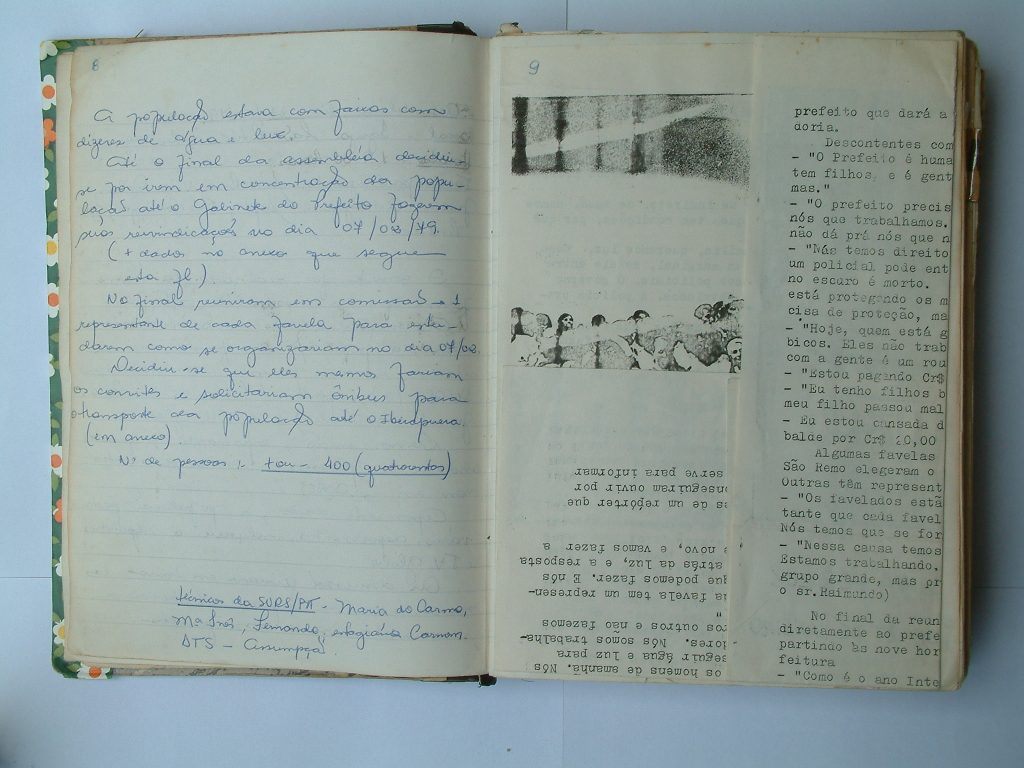 8
A população estava com faixas com
dizeres de água e luz.
Até o final da assembléia decidiu-
se por irem em concentração da popu-
lação até o Gabinete do Prefeito fazerem
suas reivindicações no dia 07/08/79.
(+ dados no anexo que segue
esta fl.)
No final reuniram em comissão e 1
representante de cada favela para enten-
darem como se organizariam no dia 07/08.
Decidiu-se que eles mesmos fariam
os convites e solicitariam ônibus para
o transporte da população até o Ibirapuera.
(em anexo)
Nº de pessoas :- + ou - 400 (quatrocentos)
técnicos da SURS/PJ - Maria do Carmo,
Mª Inês, Fernando, estagiária Carmen.
DTS - Assumpça
9
serve para informar
nseguiram ouvir por
es de um repórter que
e novo, e vamos fazer a
atrás da luz, e a resposta
que podemos fazer. E nós
a favela tem um represen-
"
ros outros e não fazemos
dores. Nós somos trabalha-
seguir água e luz para
os homens de amanhã. Nós
prefeito que dará a
doria.
Descontentes com
- "O Prefeito é huma
tem filhos e é gent
mas."
- "O prefeito precis
nós que trabalhamos.
não dá prá nós que n
- "Nós temos direito
um policial pode ent
no escuro é morto.
está protegendo os m
cisa de proteção, ma
- "Hoje, quem está g
bicos. Eles não trab
com a gente é um rou
- "Estou pagando Cr$
- "Eu tenho filhos b
meu filho passou mal
- Eu estou cansada d
balde por Cr$ 20,00
Algumas favelas
São Remo elegeram o
Outras têm represent
- "Os favelados estã
tante que cada favel
Nós temos que se for
- "Nessa causa temos
Estamos trabalhando.
grupo grande, mas pr
o sr. Raimundo)
No final da reun
diretamente ao prefe
partindo às nove hor
feitura
- "Como é o ano Inte